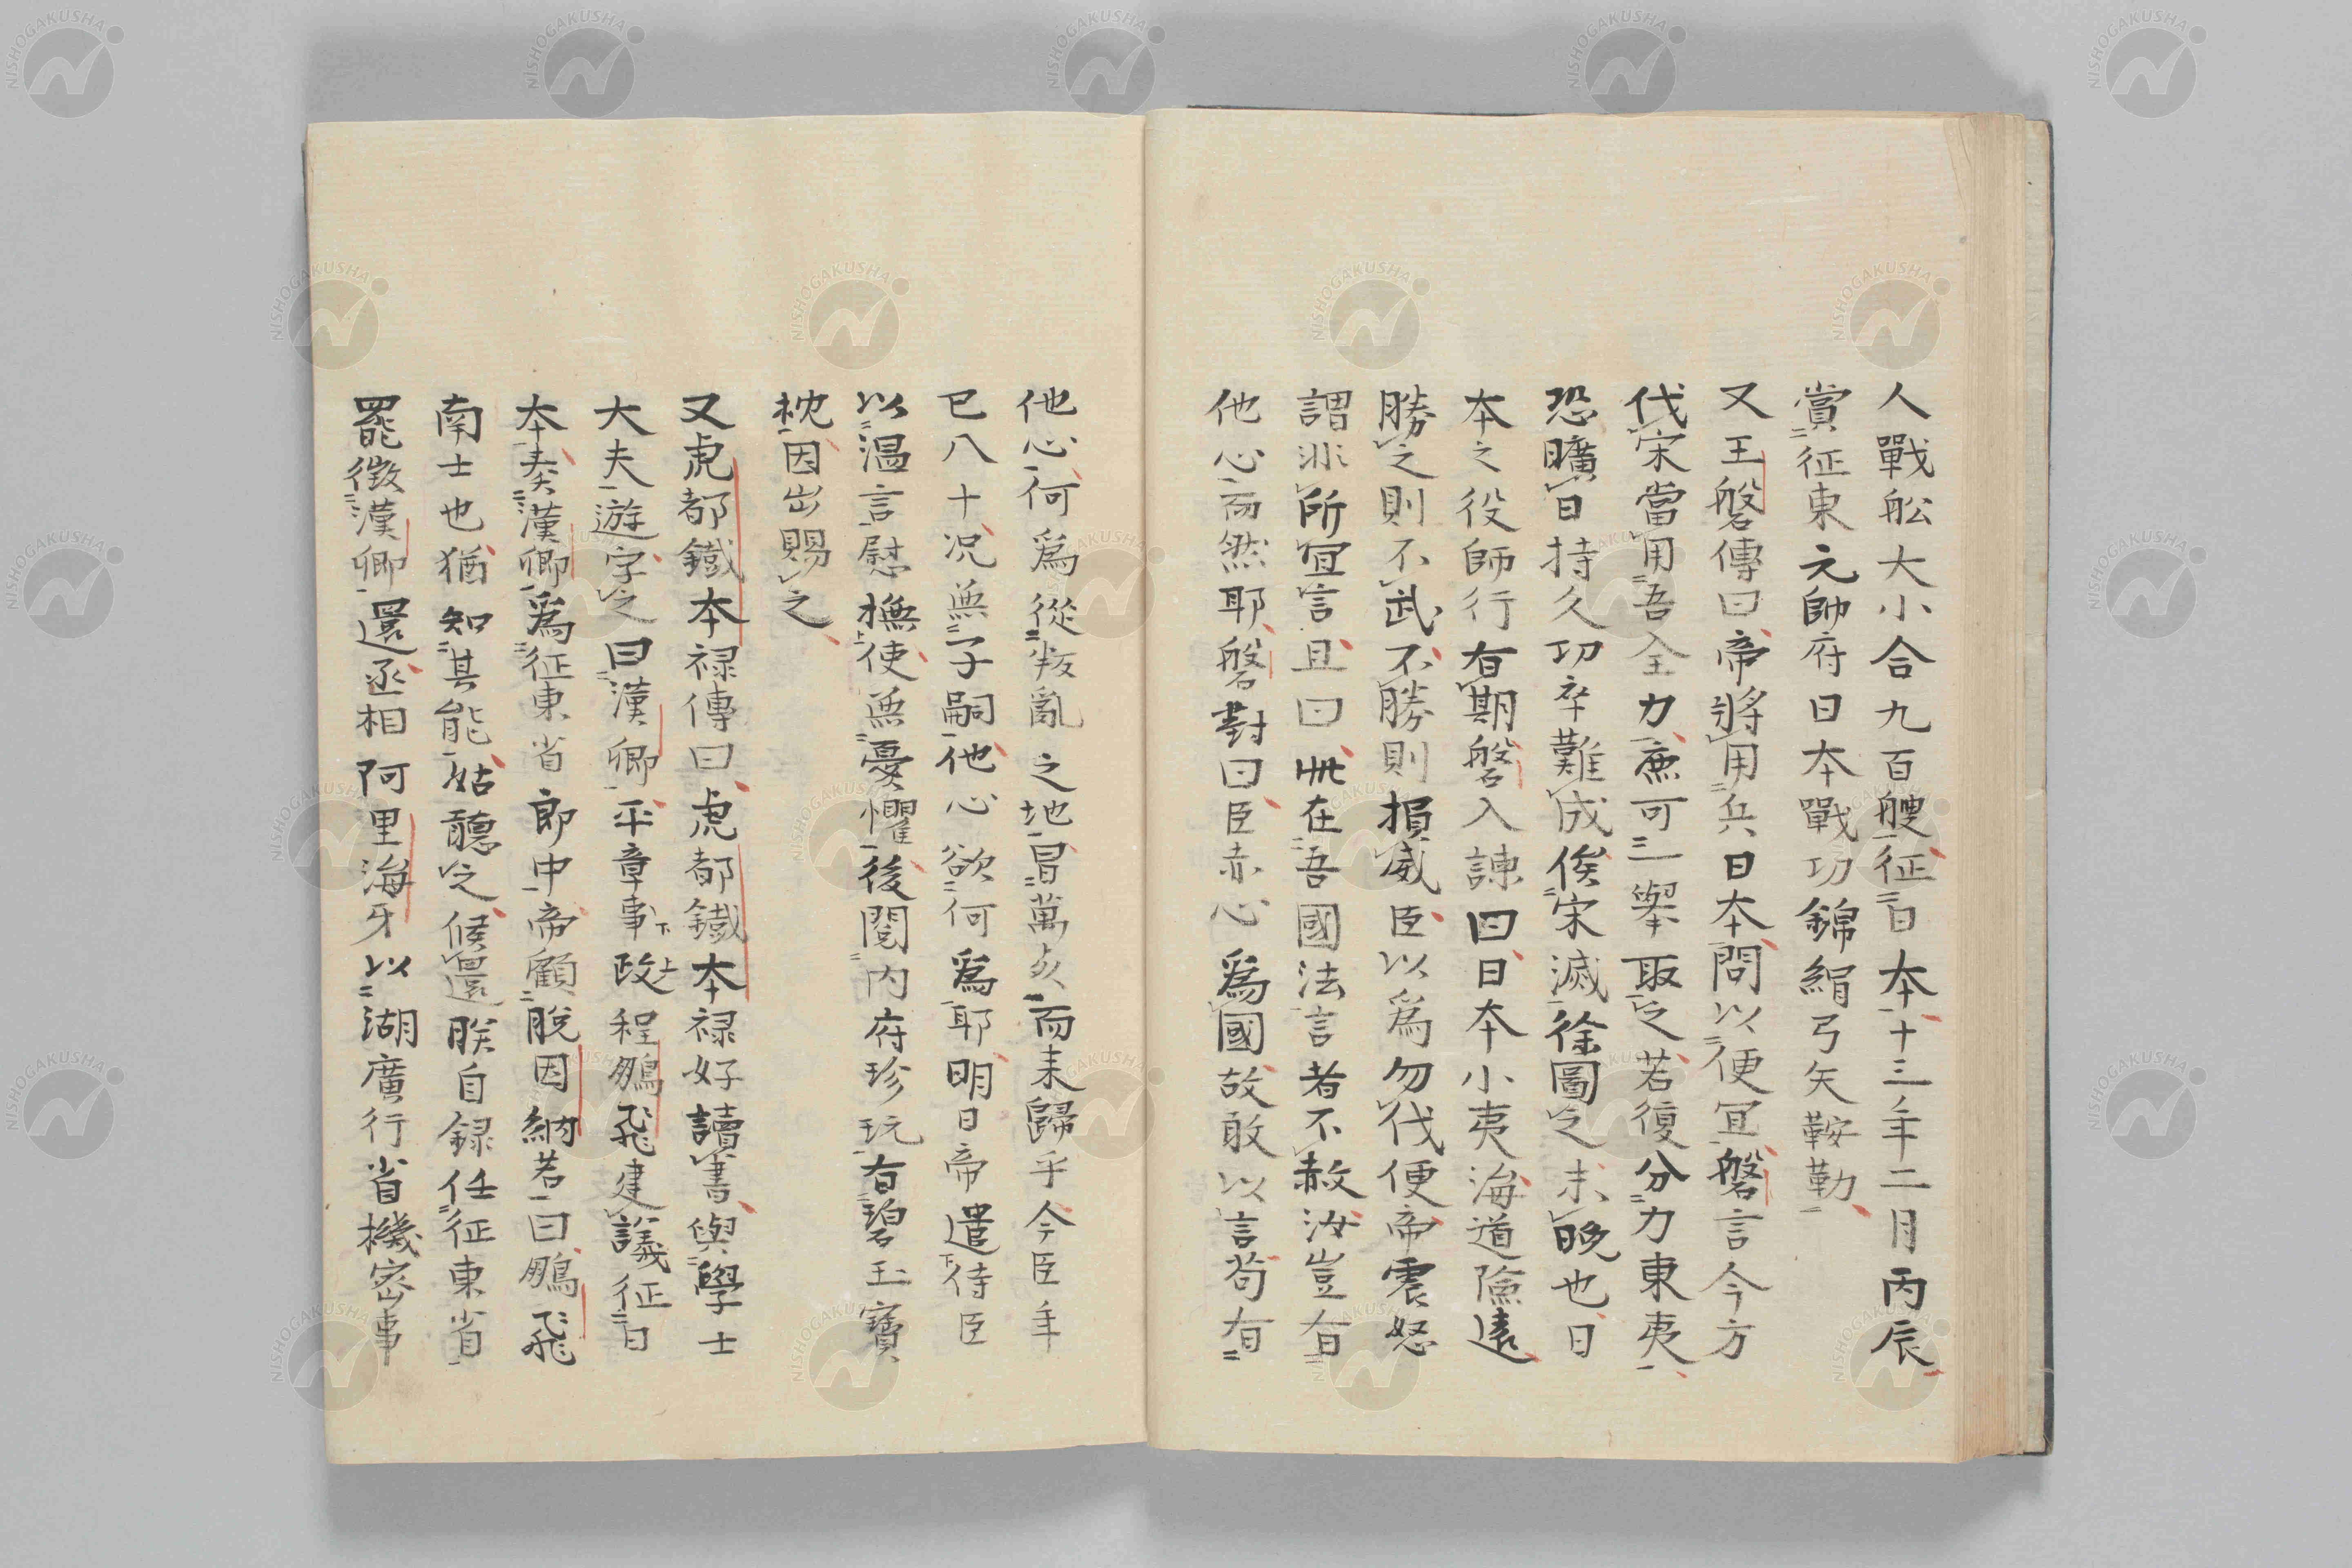 人戰舩大小合九百艘征日本十三年二月丙辰
賞征東元帥府日本戰功錦絹弓矢鞍勒
又王磐傳曰帝將用兵日本問以便冝磐言今方
伐宋當用吾全力庶可一舉取之若復分力東夷
恐曠日持久功卒難成俟宋滅徐圖之未晚也日
本之役師行有期磐入諌曰日本小夷海道險遠
勝之則不武不勝則損威臣以爲勿伐便帝震怒
謂非所冝言且曰此在吾國法言者不赦汝豈有
他心而然耶磐對曰臣赤心爲國故敢以言苟有
他心何爲從叛亂之地冒萬死而来歸乎今臣年
已八十况無子嗣他心欲何爲耶明日帝遣侍臣
以温言慰撫使無憂懼後閲内府珍玩有碧玉寶
枕因出賜之
又虎都鐵本禄傳曰虎都鐵本禄好讀書與學士
大夫遊字之曰漢卿平章事下政上程鵬飛建議征日
本奏漢卿爲征東省郎中帝顧脱因納若曰鵬飛
南士也猶知其能姑聽之候還朕自録任征東省
罷徴漢卿還丞相阿里海牙以湖廣行省機密事
NISHOGAKUSHA